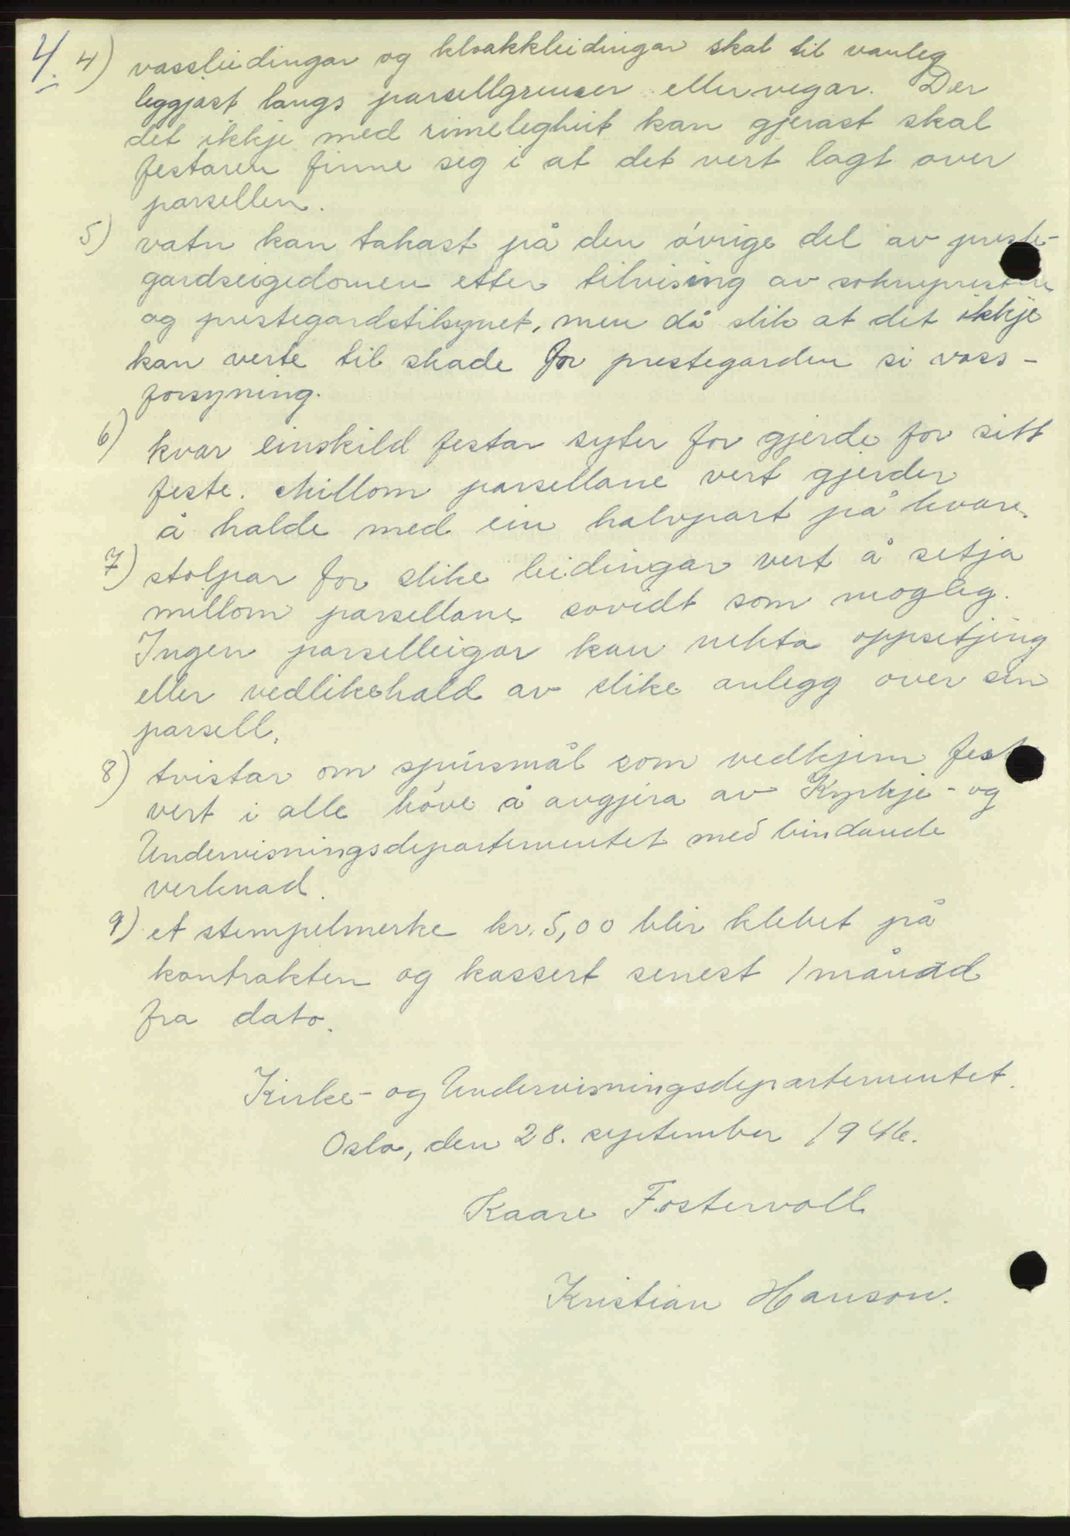 4.
4) vassleidingar og kloakkleidingar skal til vanleg
leggjast langs parsellgrenser eller vegar. Der
det ikkje med rimeleghut kan gjerast skal
festaren finne seg i at det vert lagt over
parsellen.
5) vatn kan takast på den øvrige del av preste-
gardseigedomen etter tilvising av sokneprest
og prestegardstilsynet, men då slik at det ikkje
kan verte til skade for prestegarden si vass-
forsyning.
6) kvar einskild festar syter for gjerde for sitt
feste. Millom parsellane vert gjerder
å halde med ein halvpart på kvare.
7) stolpar for slike leidingar vert å setja
millom parsellane sovidt som mogleg.
Ingen parselleigar kan nekta oppsetjing
eller vedlikehald av slike anlegg over sin
parsell.
8) tvistar om spursmål som vedkjem fest
vert i alle høve å avgjera av Kyrkje- og
Undervisningsdepartementet med bindande
verknad.
9) et stempelmerke kr. 5,00 blir klebet på
kontrakten og kassert senest 1 månad
fra dato.
Kirke- og Undervisningsdepartementet.
Oslo, den 28. september 1946.
Kaare Fostervoll
Kristian Hanson.